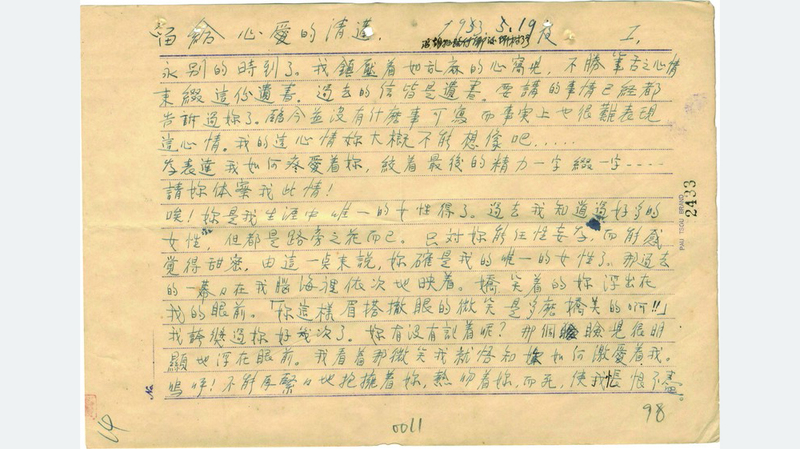 留給心愛的清蓮. 1953.5.19夜 I.
永別的時到了。我鎮壓着如乱麻的心窩兒，不勝筆舌之心情
来綴這份遺書。過去的信皆是遺書。要講的事情已經都
告訴過妳了。
並沒有什麼事可寫而事実上也很難表現
這心情。我的這心情妳大概不能想像吧.....
為表達我如何疼愛着妳，絞着最後的精力一字綴一字.....
請妳体察我此情！
唉！妳是我生涯中唯一的女性
了。過去我知道過好多的
女性，但都是路旁之花而已。只対妳能任性妄為，而能感
覚得甜密，由這一点来說，妳確是我的唯一的女性了。那過去
的一幕々在我腦海裡依次地映着。嬌笑着的妳浮出在
我的眼前。「妳這樣眉搭撤眼的微笑是多麼嬌美的啊!!」
我誇
過妳好幾次了。妳有沒有記着呢？那個臉兒很明
顯地浮在眼前。我看着那微笑我就悟知妳如何激愛着我。
嗚呼！不能再緊々地抱擁着妳，熱吻着妳，而死，使我悵恨了
No.
PAU TSOU BRAND
2433
0011
98